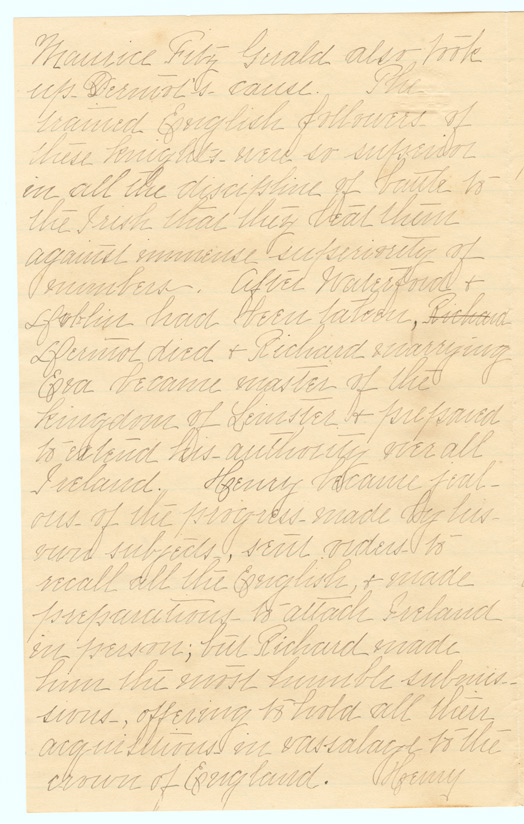 Maurice Fitz Gerald also took
up Dermot's cause. The
trained English followers of
these knights were so superior
in all the discipline of battle to
the Irish that they beat them
against immense superiority of
numbers. After Waterford +
Dublin had been taken, Richard
Dermot died + Richard marrying
Eva became master of the
kingdom of Leinster + prepared
to extend his authority over all
Ireland. Henry became jeal-
ous of the progress made by his
own subjects, sent orders to
recall all the English, + made
preparations to attach Ireland
in person; but Richard made
him the most humble submis-
sions, offering to hold all their
acquisitions in vassalage to the
crown of England. Henry